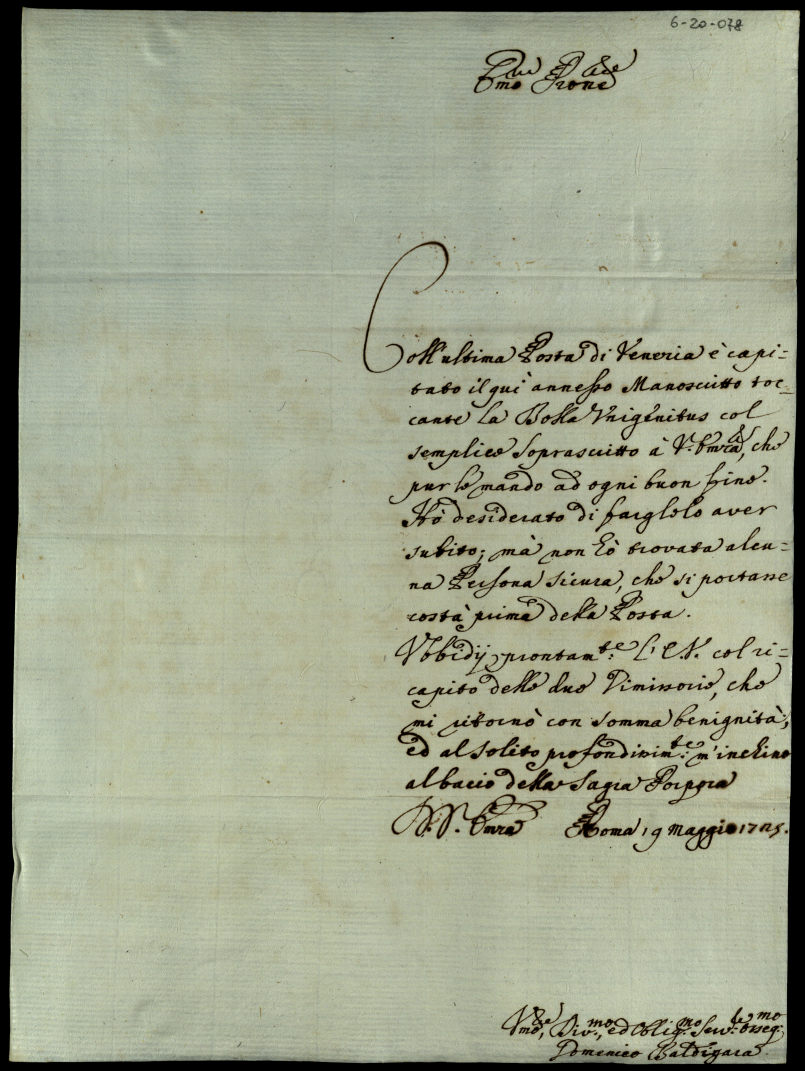 6-20-078
Em̃o Prone
Coll'ultima Posta di Venezia è capi=
tato il quì annesso Manoscritto toc=
cante la Bolla Vnigenitus col
semplice soprascritto à V. Em̃za, che
pur le mando ad ogni buon fine.
Hò desiderato di farglelo aver
subito; mà non hò trovata alcu=
na Persona sicura, che si portasse
costà prima della Posta.
Vbbidij prontam.te l'E.V. col ri=
capito delle due Dimissorie, che
mi ritornò con somma benignità;
ed al solito profondissim.te m'inchino
al bacio della Sagra Porpora
D. V. Em̃za Roma 19 Maggio 1725.
Vmo, Div.mo, ed Oblig.mo Serv.re osseq.mo
Domenico Baldigara